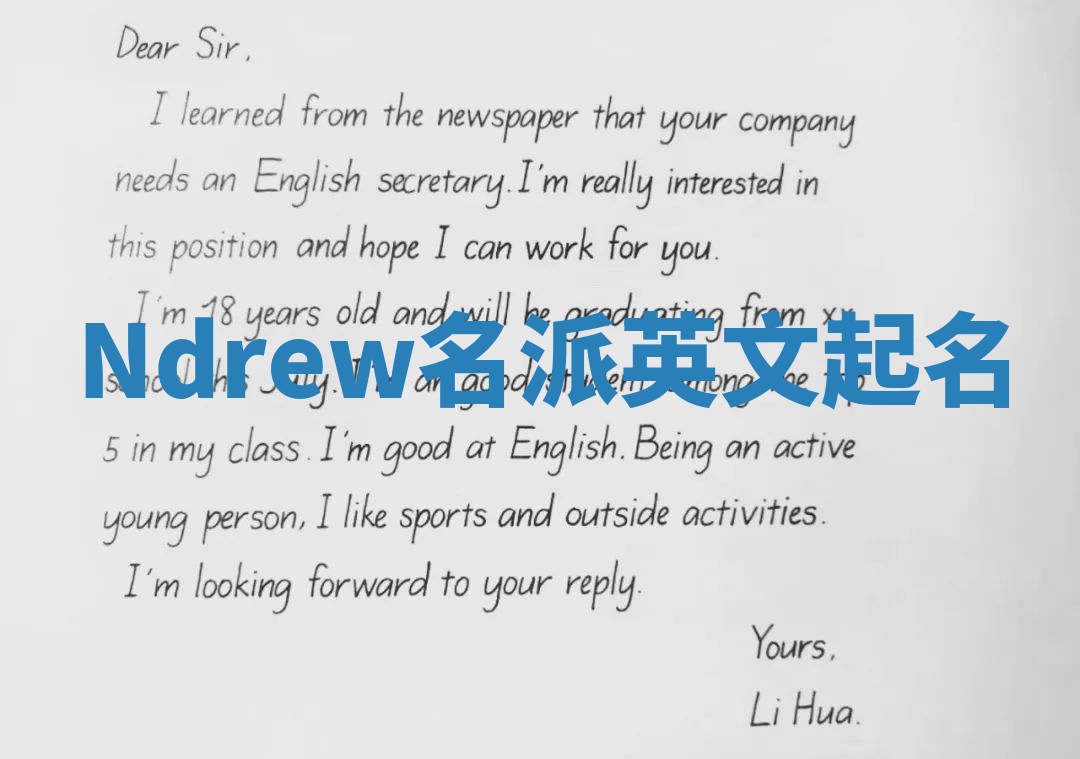 Dear Sir,
I learned from the newspaper that your company
needs an English secretary. I'm really interested in
this position and hope I can work for you.
I'm 18 years old and will be graduating from xx
Ndrew名派英文起名
school this July. I'm a good student among the top
5 in my class. I'm good at English. Being an active
young person, I like sports and outside activities.
I'm looking forward to your reply.
Yours,
Li Hua.